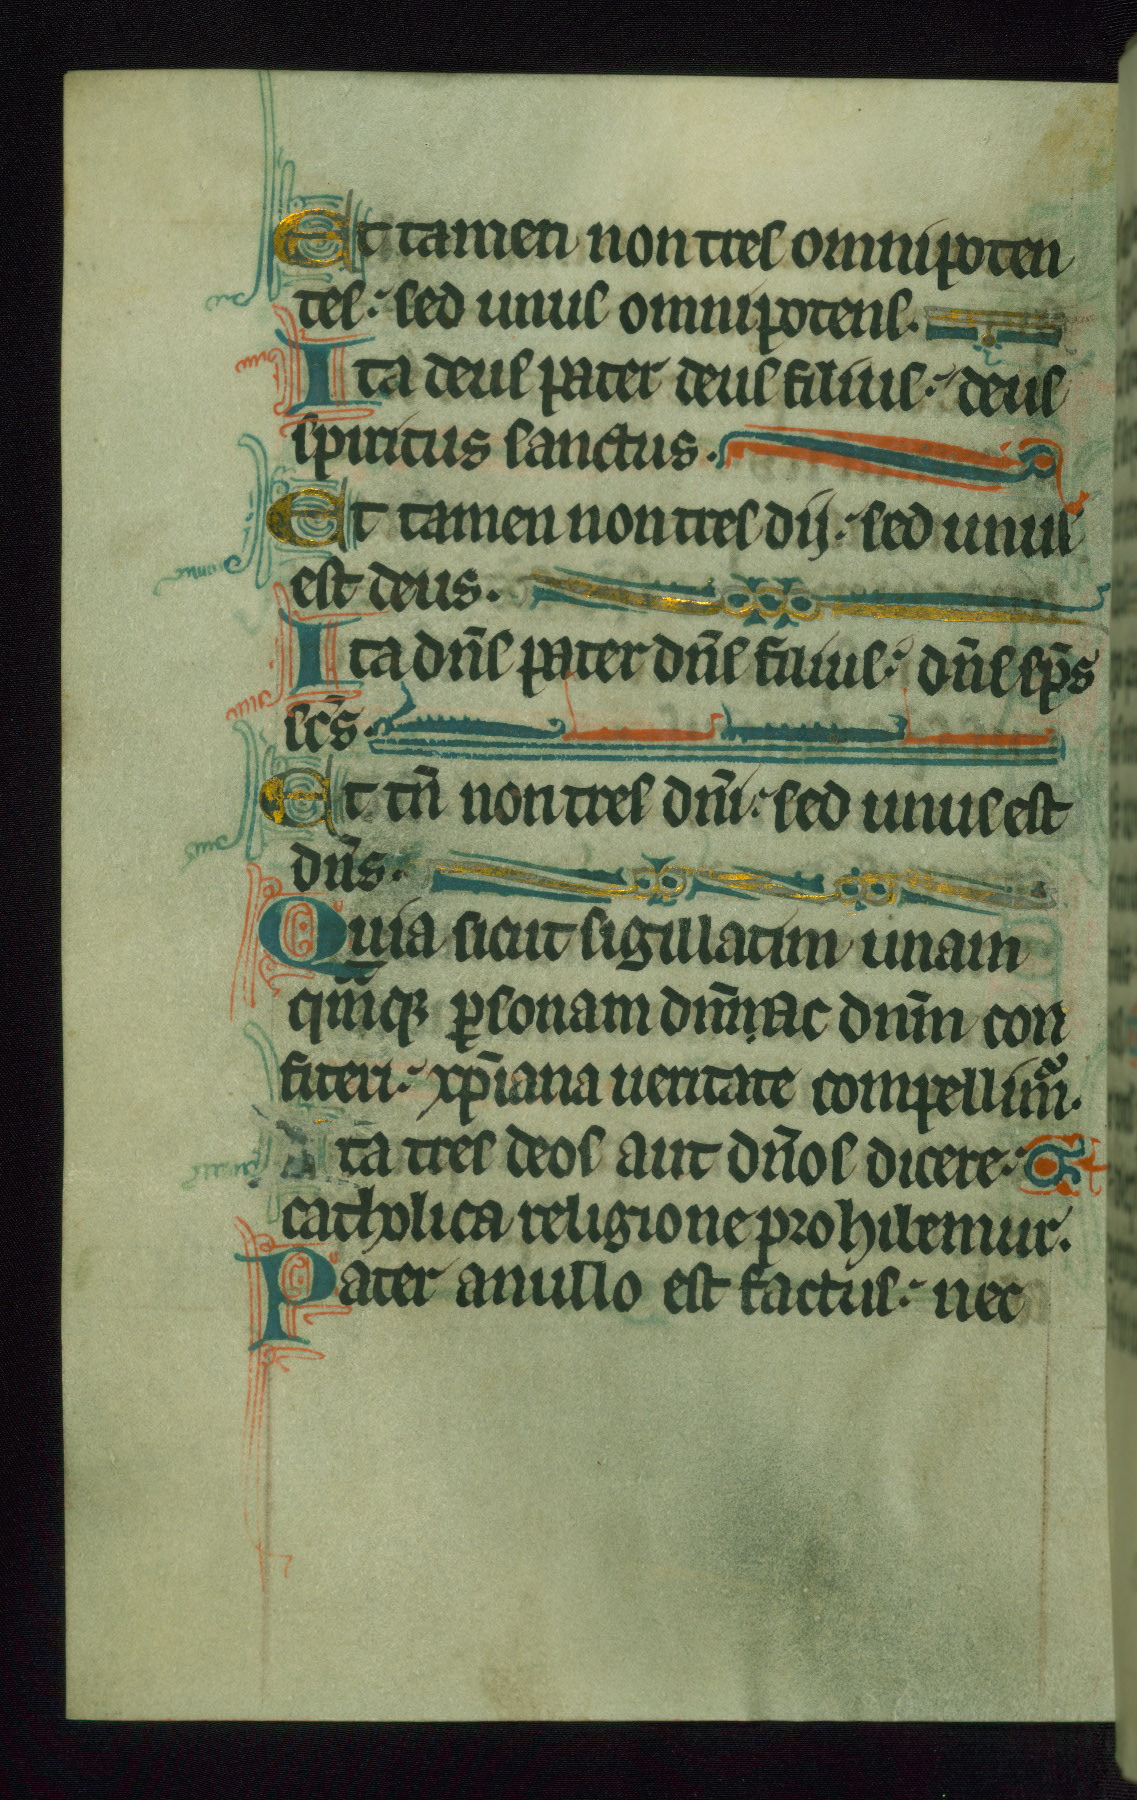 Et tamen non tres omnipoten
tes: sed unus omnipotens.
Ita deus pater deus filius: deus
spiritus sanctus.
Et tamen non tres dij: sed unus
est deus.
Ita dn̄s pater dn̄s filius: dn̄s sp̄s
sc̄s.
Et tn̄ non tres dn̄i: sed unus est
dn̄s.
Quia sicut sigillatim unam
qua̅q; ꝑsonam deum ac dn̄m con
fiteri: xp̄iana ueritate compellim᷒.
Ita tres deos aut dn̄os dicere:
catholica religione prohibemur.
Pater a nullo est factus: nec